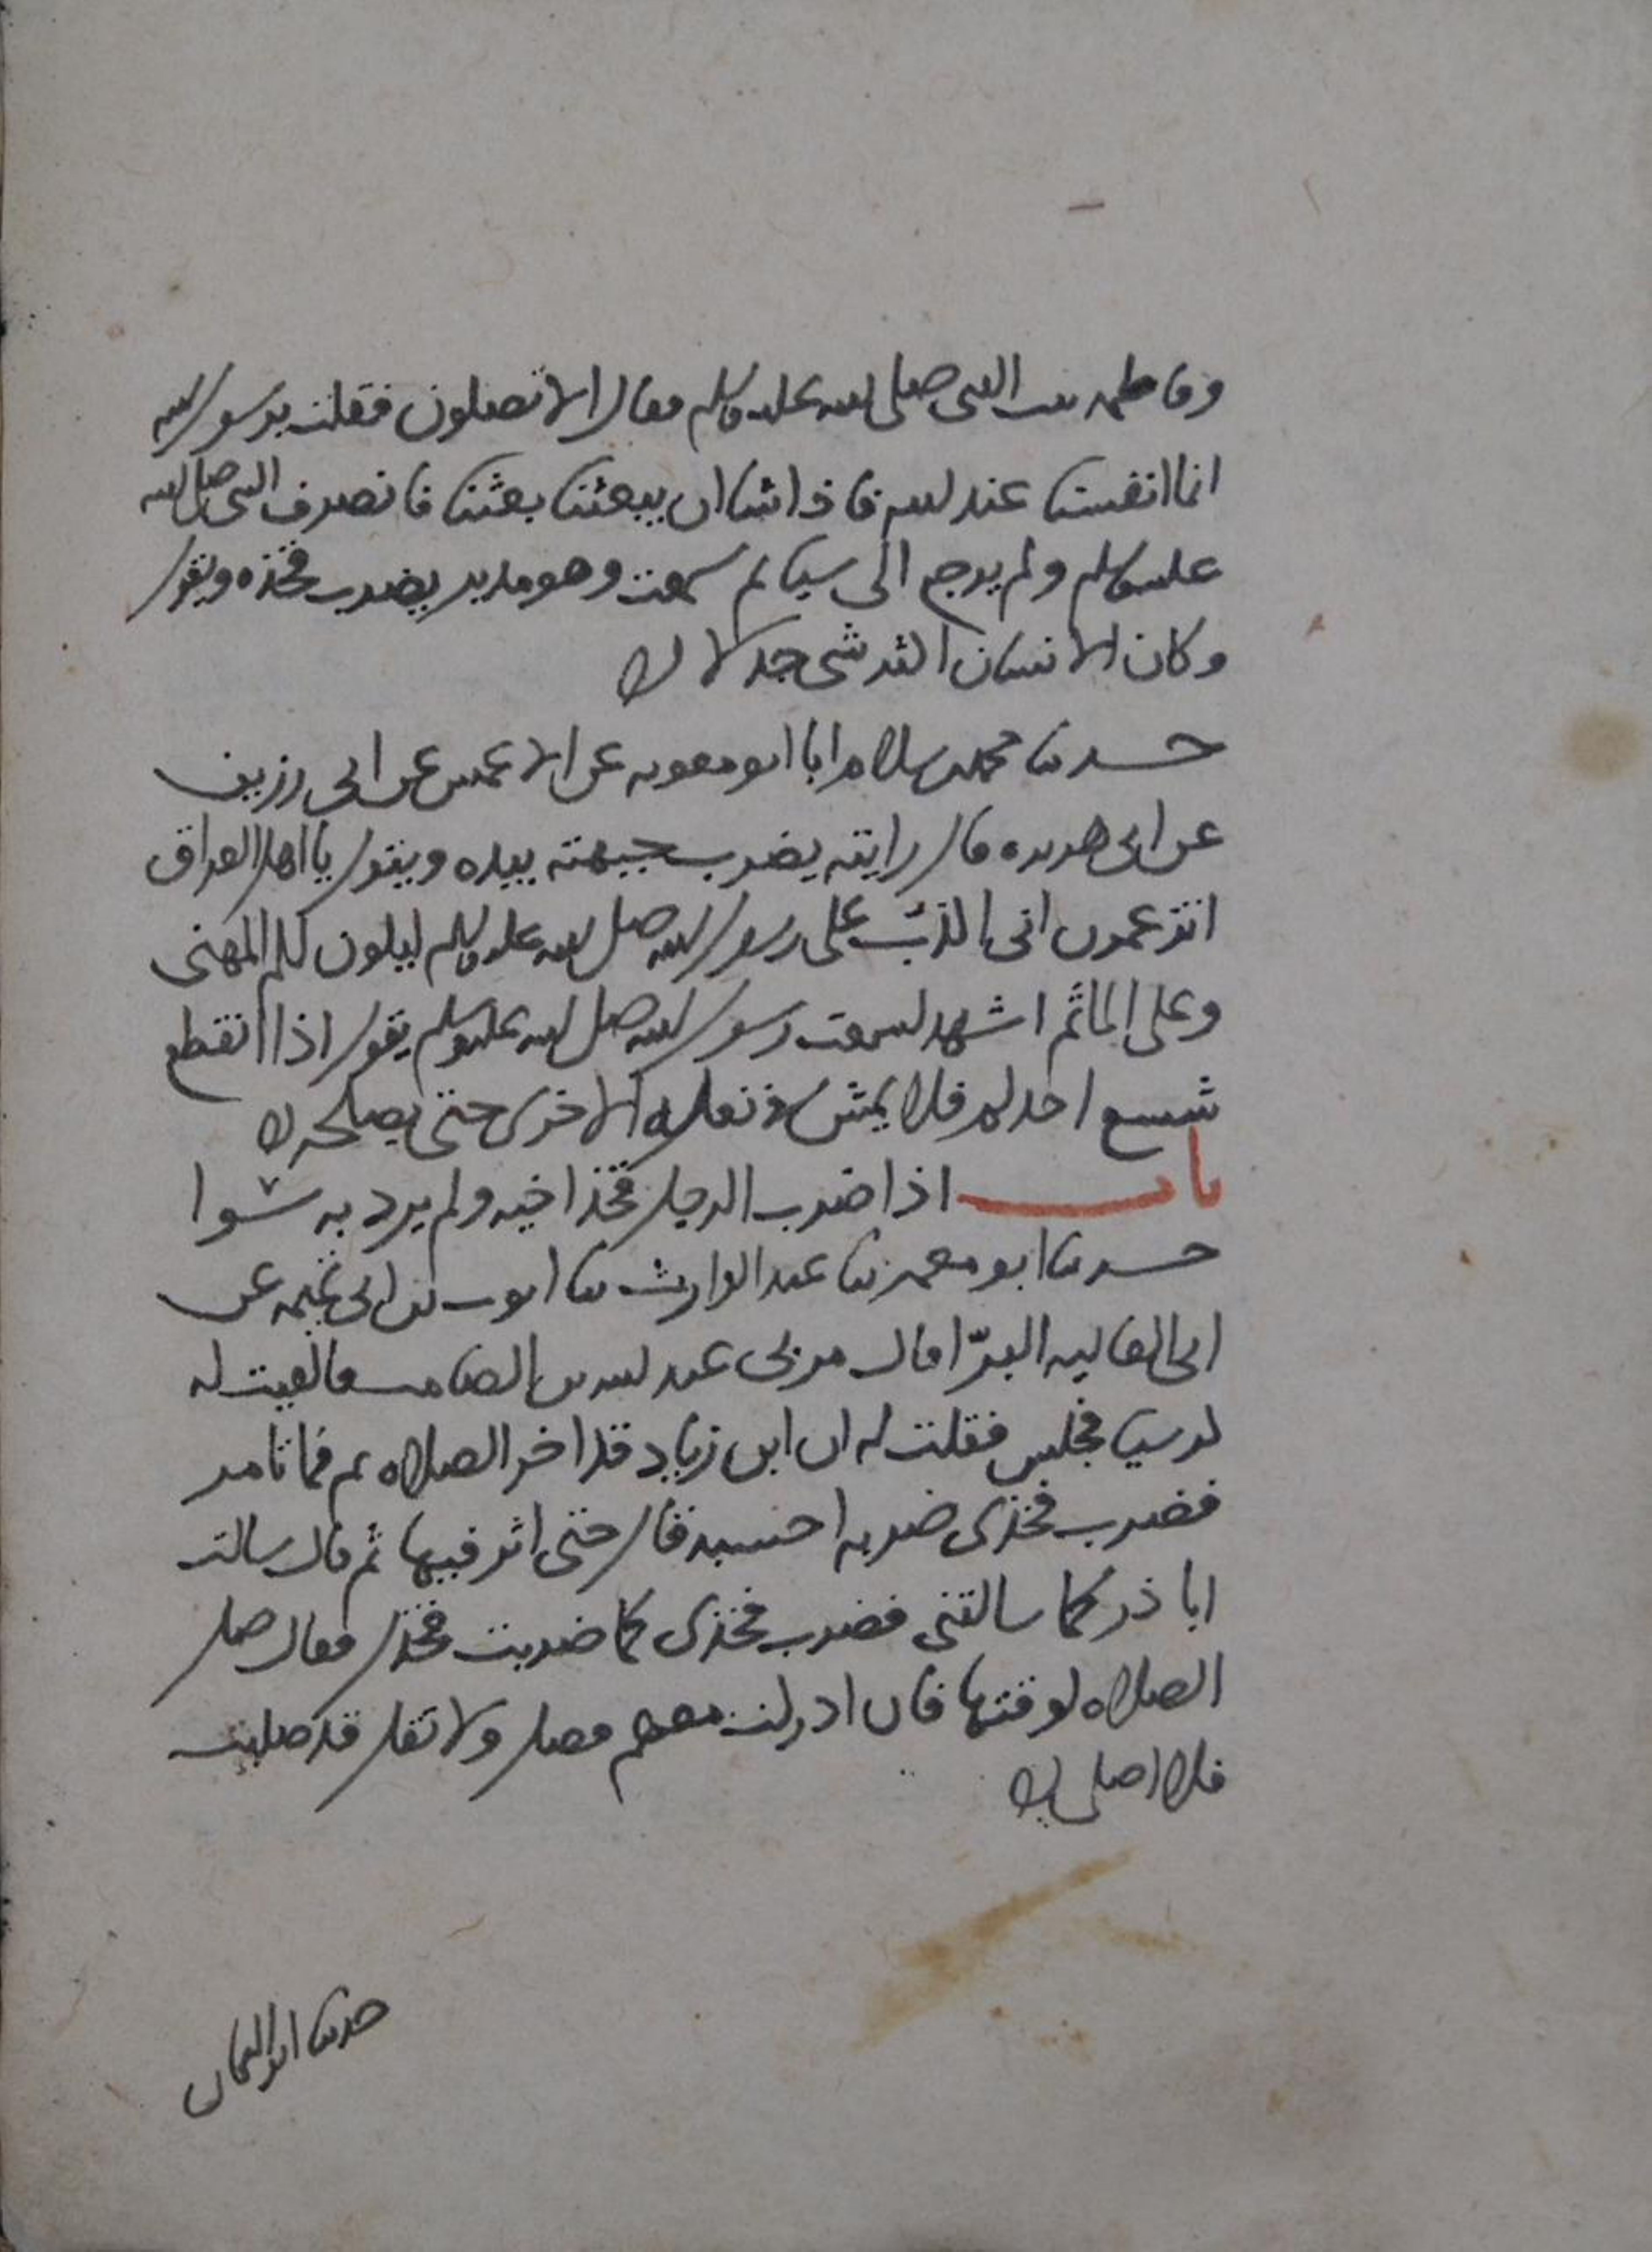 وفاطمه بنت النبى صلى الله عليه وسلم فقال الا تصلون فقلت يرسول الله
انما انفسنا عند الله فاذا شا ان يبعثنا بعثنا فانصرف النبى صلى الله
عليه وسلم ولم يرجع الى شيا ثم سمعت وهو مدبر يضرب فخذه ويقول
وكان الانسان اكثر شى جدلا
حدثنا محمد بن سلام ابا ابو معويه عن الاعمش عن ابى رزين
عن ابى هريره قال رايته يضرب جبهته بيده ويقول يا اهل العراق
اتزعمون انى اكذب على رسول الله صلى الله عليه وسلم ليكون لكم المهنى
وعلى الماثم اشهد لسمعت رسول الله صلى الله عليه وسلم يقول اذا انقطع
شسع احدكم فلا يمش فى نعله الاخرى حتى يصلحه
باب اذا ضرب الرجل فخذ اخيه ولم يرد به سوا
حدثنا ابو معمر ثنا عبد الوارث ثنا ايوب بن ابى تميمه عن
ابى العاليه البرّا قال مر بى عبد الله بن الصامت فالقيت له
كرسيا فجلس فقلت له ان ابن زياد قد اخر الصلاه فما تامر
فضرب فخذى ضربه احسبه قال حتى اثر فيها ثم قال سالت
ابا ذر كما سالتنى فضرب فخذى كما ضربت فخذك فقال صل
الصلاه لوقتها فان ادركت معهم فصل ولا تقل قد صليت
فلا اصلى
حدثنا ابو اليمان